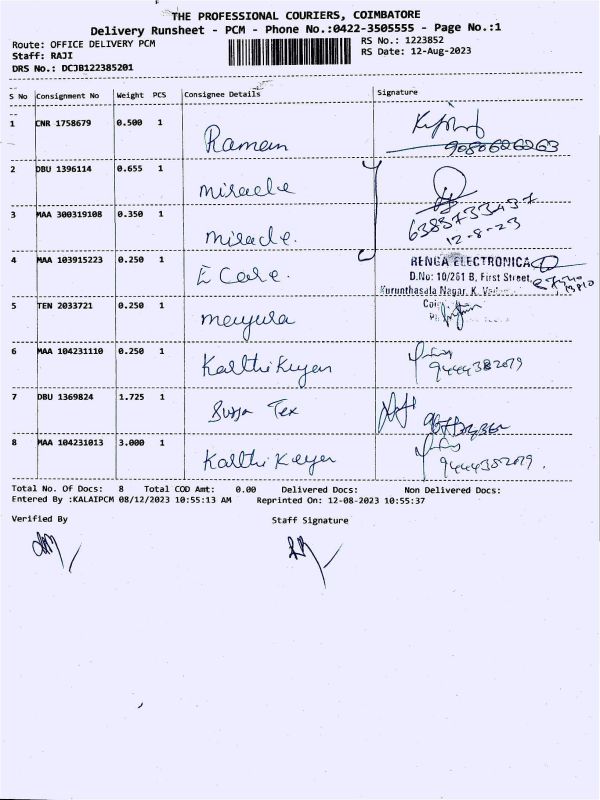 THE PROFESSIONAL COURIERS, COIMBATORE
Delivery Runsheet - PCM - Phone No.:0422-3505555 - Page No.:1
Route: OFFICE DELIVERY PCM
RS No.: 1223852
Staff: RAJI
RS Date: 12-Aug-2023
DRS No.: DCJB122385201
S No Consignment No Weight PCS Consignee Details Signature
1 CNR 1758679 0.500 1 Raman
9080626263
2 DBU 1396114 0.655 1 miracle
6385733437
3 MAA 300319108 0.350 1 miracle.
12-8-23
4 MAA 103915223 0.250 1 E Care.
RENGA ELECTRONICA
D.No: 10/261 B, First Street,
Kurunthasala Nagar, K.
5 TEN 2033721 0.250 1 mayura
6 MAA 104231110 0.250 1 Karthikeyan
9444382079
7 DBU 1369824 1.725 1 Tex
8 MAA 104231013 3.000 1 Karthikeyan
9444382079.
Total No. Of Docs: 8 Total COD Amt: 0.00 Delivered Docs: Non Delivered Docs:
Entered By :KALAIPCM 08/12/2023 10:55:13 AM Reprinted On: 12-08-2023 10:55:37
Verified By Staff Signature